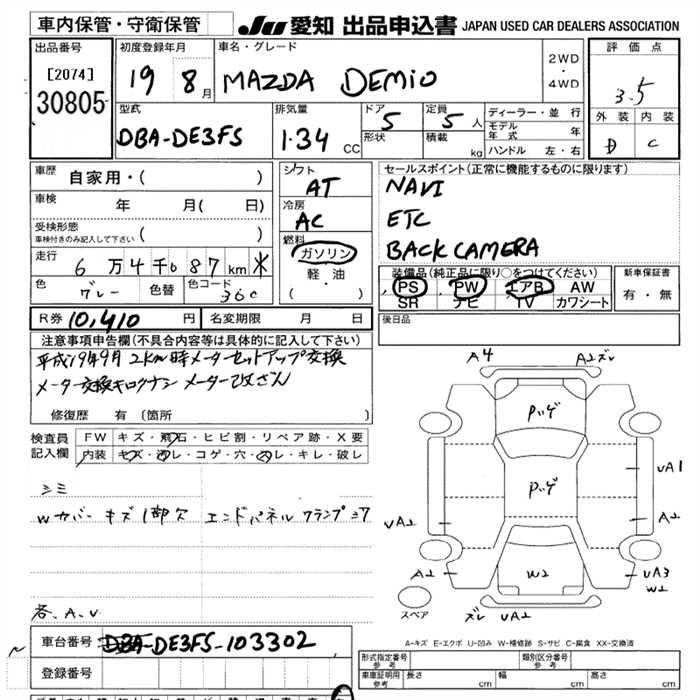 車内保管・守衛保管
JU 愛知 出品申込書 JAPAN USED CAR DEALERS ASSOCIATION
出品番号
[2074]
30805
初度登録年月
19 8月
車名・グレード
MAZDA DEMIO
2WD
・
4WD
評価点
3.5
外装 内装
D C
型式
DBA-DE3FS
排気量
1.34 CC
ドア 5
形状
定員 5人
積載 kg
ディーラー・並行
モデル年式 年
ハンドル 左・右
車歴
自家用・( )
車検
年 月( 日)
受検形態
車検付きのみ記入して下さい ( )
走行
6万4千087km *
色
グレー
色替
色コード
36C
シフト
AT
冷房
AC
燃料
ガソリン
軽油
( ・ )
セールスポイント(正常に機能するものに限ります)
NAVI
ETC
BACK CAMERA
装備品(純正品に限り○をつけてください)
PS PW エアB AW
SR ナビ TV カワシート
新車保証書
有・無
R券 10,410円
名変期限 月 日
後日品
注意事項申告欄(不具合内容等は具体的に記入して下さい)
平成19年9月 2Km時メーターセットアップ交換
メーター交換キロクナシ メーター改ざん
修復歴 有 (箇所 )
検査員
記入欄
FW キズ・飛石・ヒビ割・リペア跡・X要
内装 キズ・汚レ・コゲ・穴・スレ・キレ・破レ
シミ
Wカバー キズ1部欠 エンドパネル クランプ
各、A、U
A4
A2ズレ
Pハゲ
Pハゲ
UA1
UA2
A2
A2
W2
UA3
W2
スペア
ズレ UA2
A-キズ E-エクボ U-凹み W-補修跡 S-サビ C-腐食 XX-交換済
車台番号
DBA-DE3FS-103302
登録番号
形式指定番号
参考
類別区分番号
参考
車車証明用
参考
長さ cm
幅 cm
高さ cm